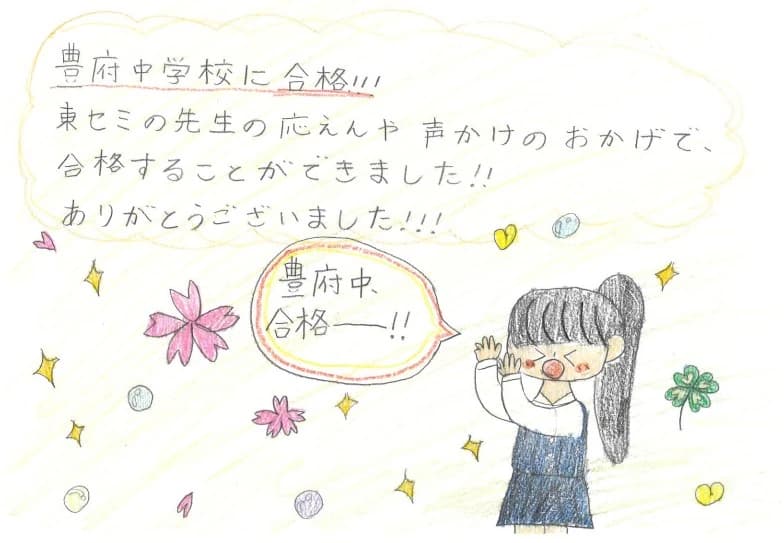 豊府中学校に合格!!!
東セミの先生の応えんや声かけのおかげで、
合格することができました!!
ありがとうございました!!!
豊府中、
合格――!!